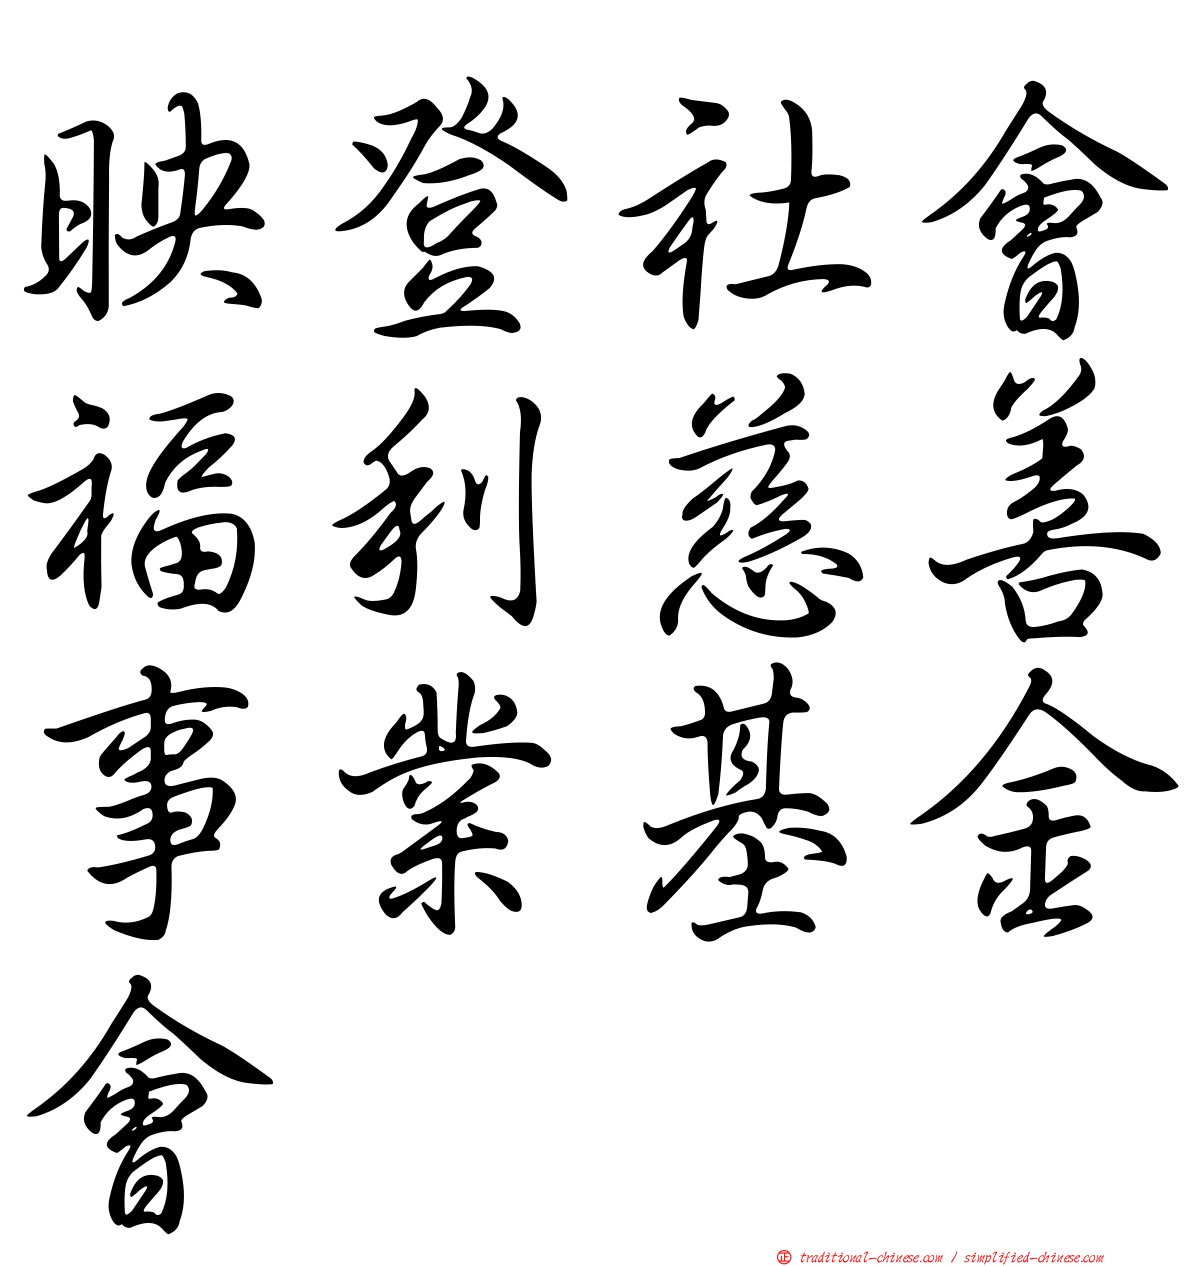 映登社會
福利慈善
事業基金
會
正 traditional-chinese.com / simplified-chinese.com